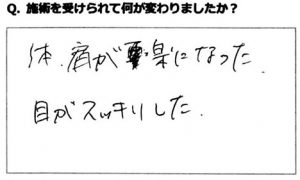 Q. 施術を受けられて何が変わりましたか？
体、肩が楽になった
目がスッキリした.